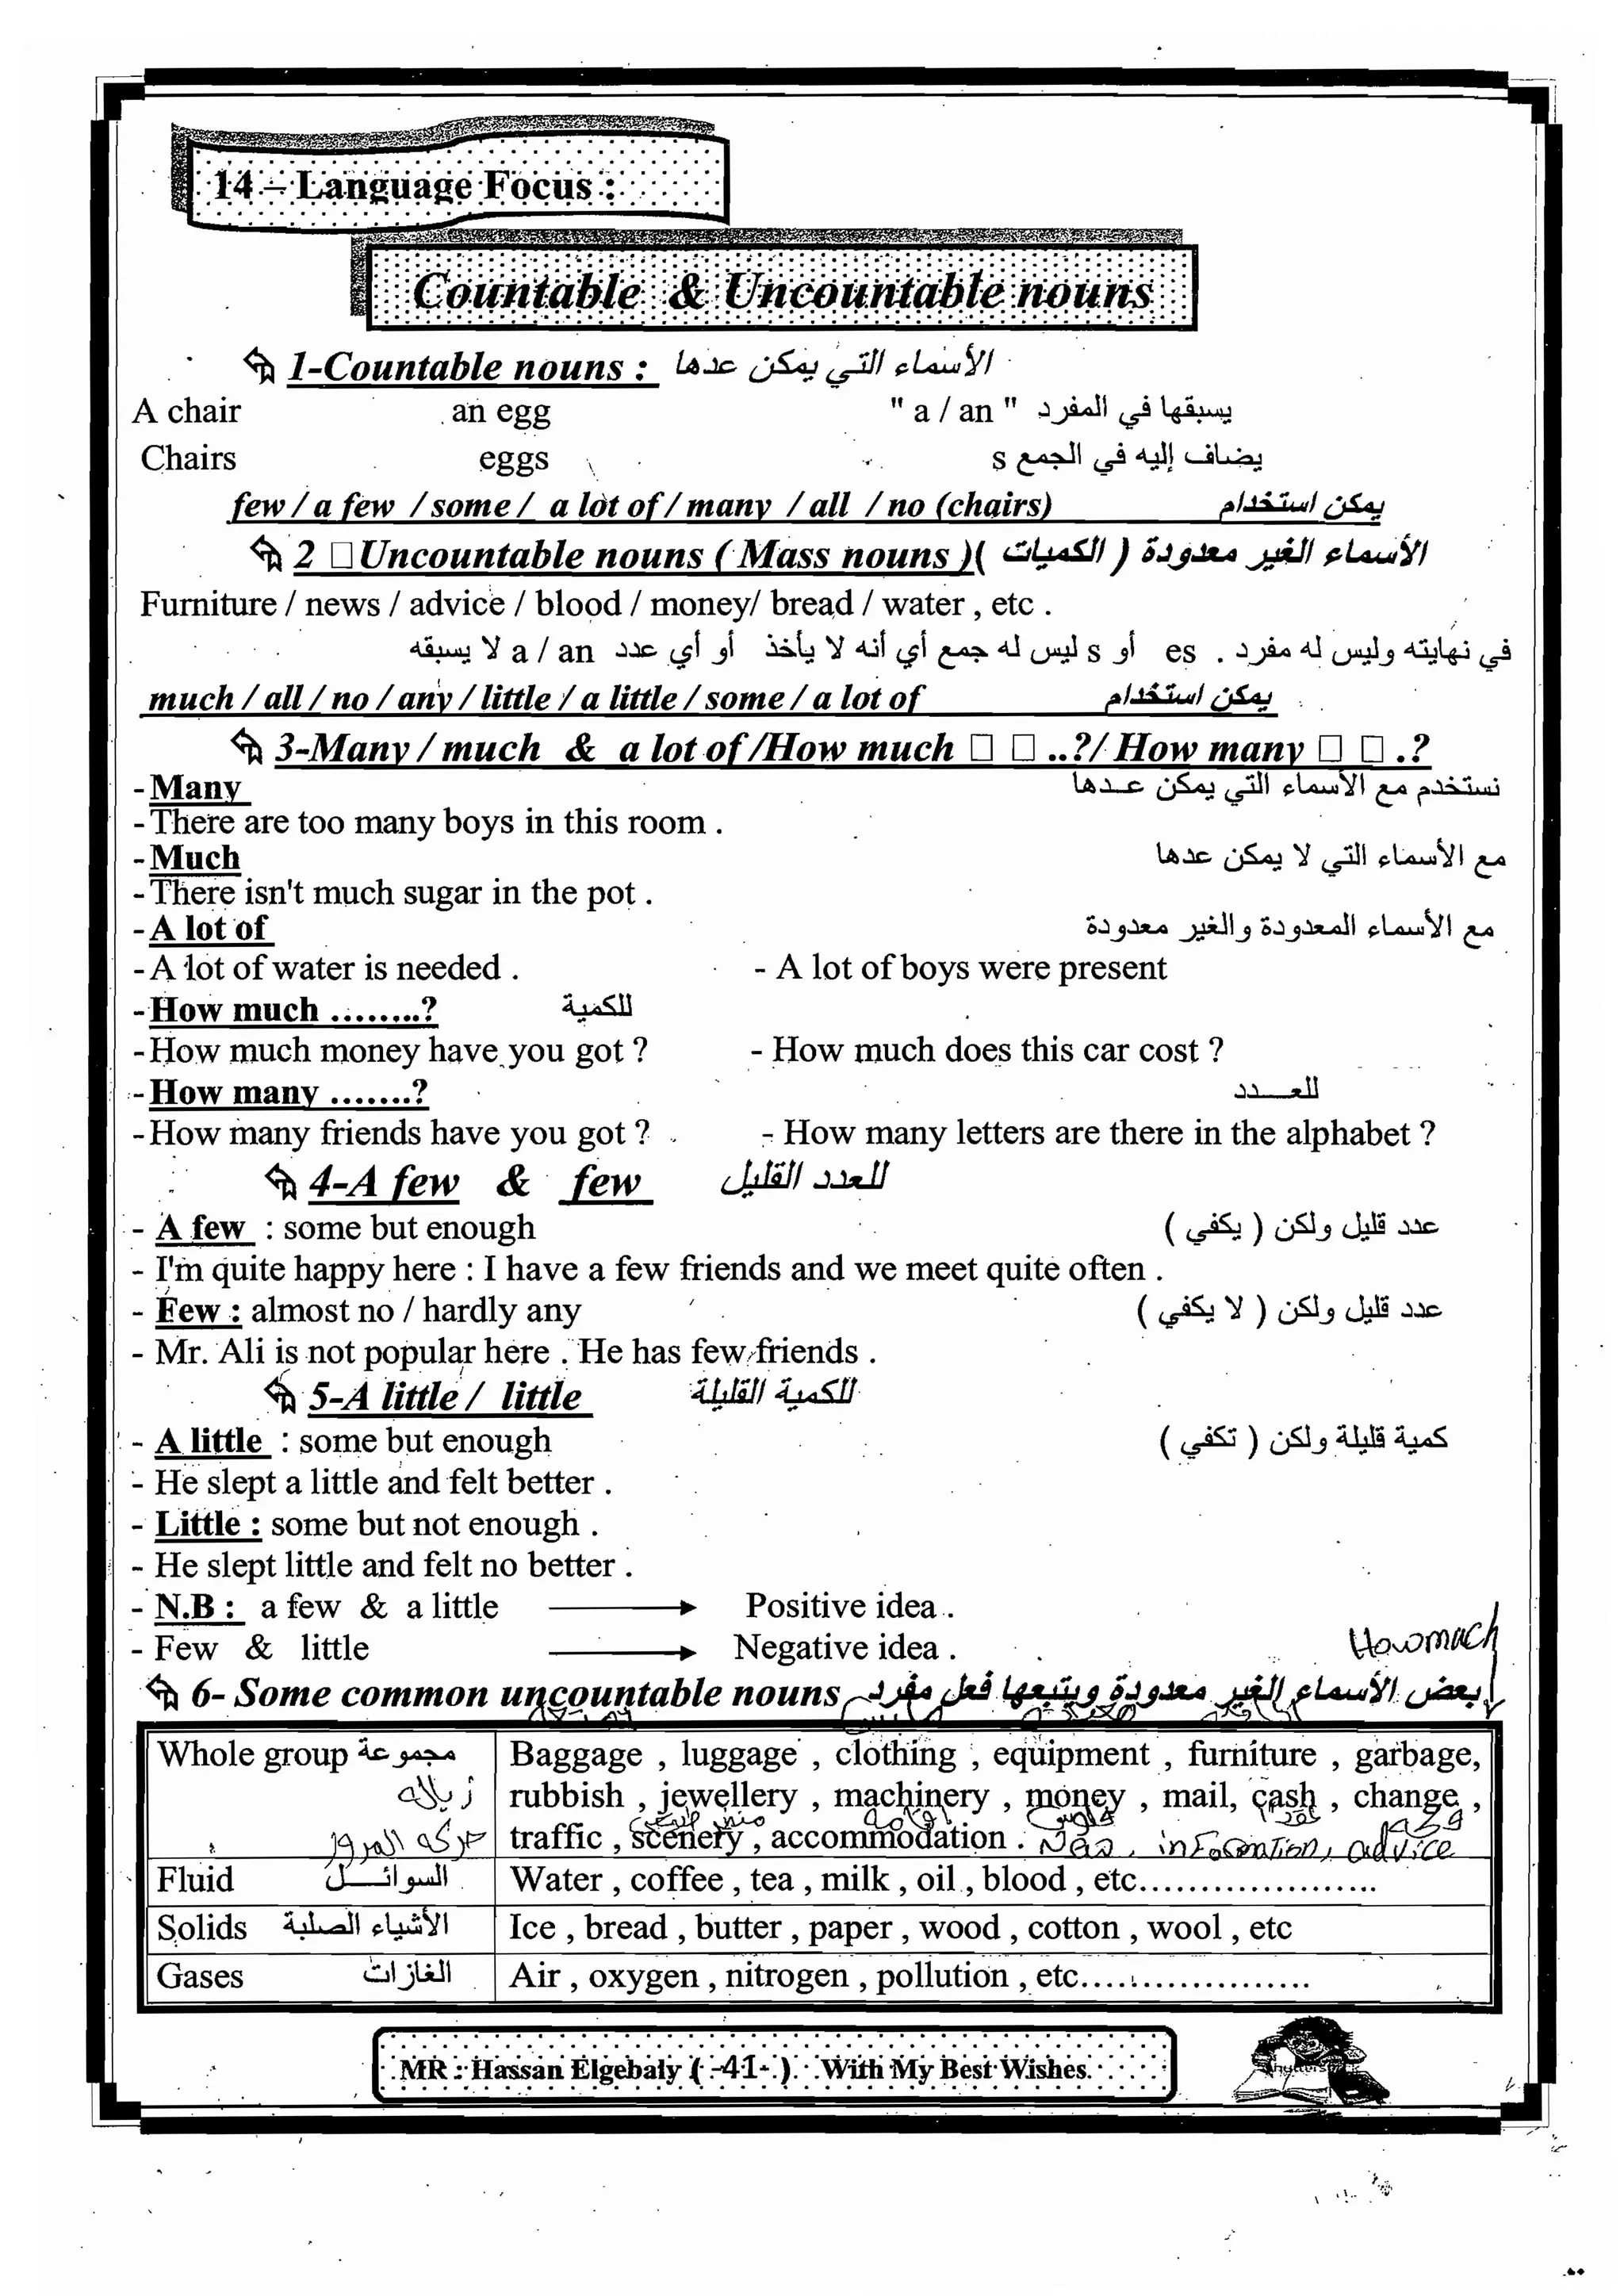 14 – Language Focus :
Countable & Uncountable nouns
1-Countable nouns : الأسماء التي يمكن عدها
A chair an egg " a / an " يسبقها في المفرد
Chairs eggs يضاف إليه في الجمع s
few / a few / some / a lot of / many / all / no (chairs) يمكن استخدام
2 □Uncountable nouns ( Mass nouns )( الأسماء الغير معدودة ( الكميات
Furniture / news / advice / blood / money/ bread / water , etc .
لا يسبقه a / an أو أي عدد ليس له جمع أي أنه لا يأخذ s أو es في نهايته وليس له مفرد .
much / all / no / any / little / a little / some / a lot of يمكن استخدام
3-Many / much & a lot of /How much □ □ ..?/ How many □ □ .?
- Many نستخدم مع الأسماء التي يمكن عـدها
- There are too many boys in this room .
- Much مع الأسماء التي لا يمكن عدها
- There isn't much sugar in the pot .
- A lot of مع الأسماء المعدودة والغير معدودة
- A lot of water is needed . - A lot of boys were present
- How much ........? للكمية
- How much money have you got ? - How much does this car cost ?
- How many .......? للعـــدد
- How many friends have you got ? - How many letters are there in the alphabet ?
4-A few & few للعدد القليل
- A few : some but enough عدد قليل ولكن ( يكفي )
- I'm quite happy here : I have a few friends and we meet quite often .
- Few : almost no / hardly any عدد قليل ولكن ( لا يكفي )
- Mr. Ali is not popular here . He has few friends .
5-A little / little للكمية القليلة
- A little : some but enough كمية قليلة ولكن ( تكفي )
- He slept a little and felt better .
- Little : some but not enough .
- He slept little and felt no better .
- N.B : a few & a little → Positive idea .
- Few & little → Negative idea .
Howmach
6- Some common uncountable nouns بعض الأسماء الغير معدودة ويتبعها فعل مفرد
Whole group مجموعة Baggage , luggage , clothing , equipment , furniture , garbage,
زبالة rubbish , jewellery , machinery , money , mail, cash , change ,
حركه المرور traffic , scenery , accommodation . , information, advice
Fluid السوائـــل Water , coffee , tea , milk , oil , blood , etc.....................
Solids الأشياء الصلبة Ice , bread , butter , paper , wood , cotton , wool , etc
Gases الغازات Air , oxygen , nitrogen , pollution , etc....................
MR : Hassan Elgebaly ( -41- ) With My Best Wishes.